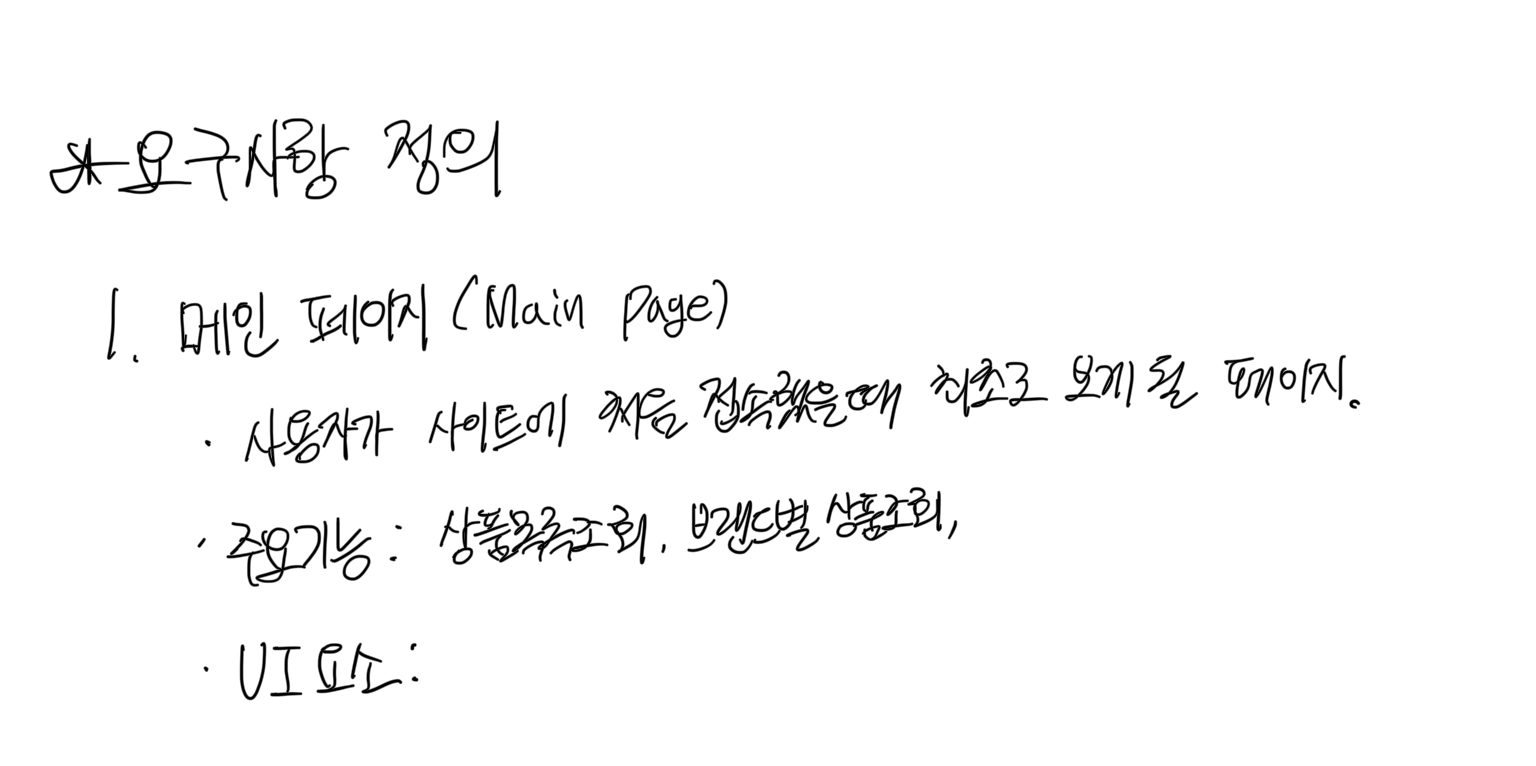 *요구사항 정의
1. 메인 페이지 (Main page)
· 사용자가 사이트에 처음 접속했을때 최초로 보게 될 페이지.
· 주요기능 : 상품목록조회, 브랜드별 상품조회,
· UI 요소 :